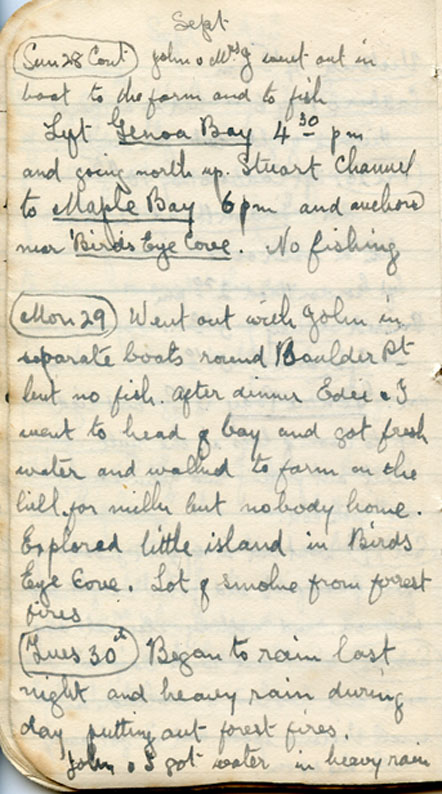 Sept
Sun 28 Cont John & Mrs J went out in
boat to the farm and to fish
Left Genoa Bay 4 30 pm
and going north up Stuart Channel
to Maple Bay 6 pm and anchored
near Birds Eye Cove. No fishing
Mon 29 Went out with John in
separate boats round Boulder Pt
but no fish. After dinner Edie & I
went to head of bay and got fresh
water and walked to farm on the
hill for milk but nobody home.
Explored little island in Birds
Eye Cove. Lot of smoke from forest
fires
Tues 30th Began to rain last
night and heavy rain during
day putting out forest fires.
John & I got water in heavy rain